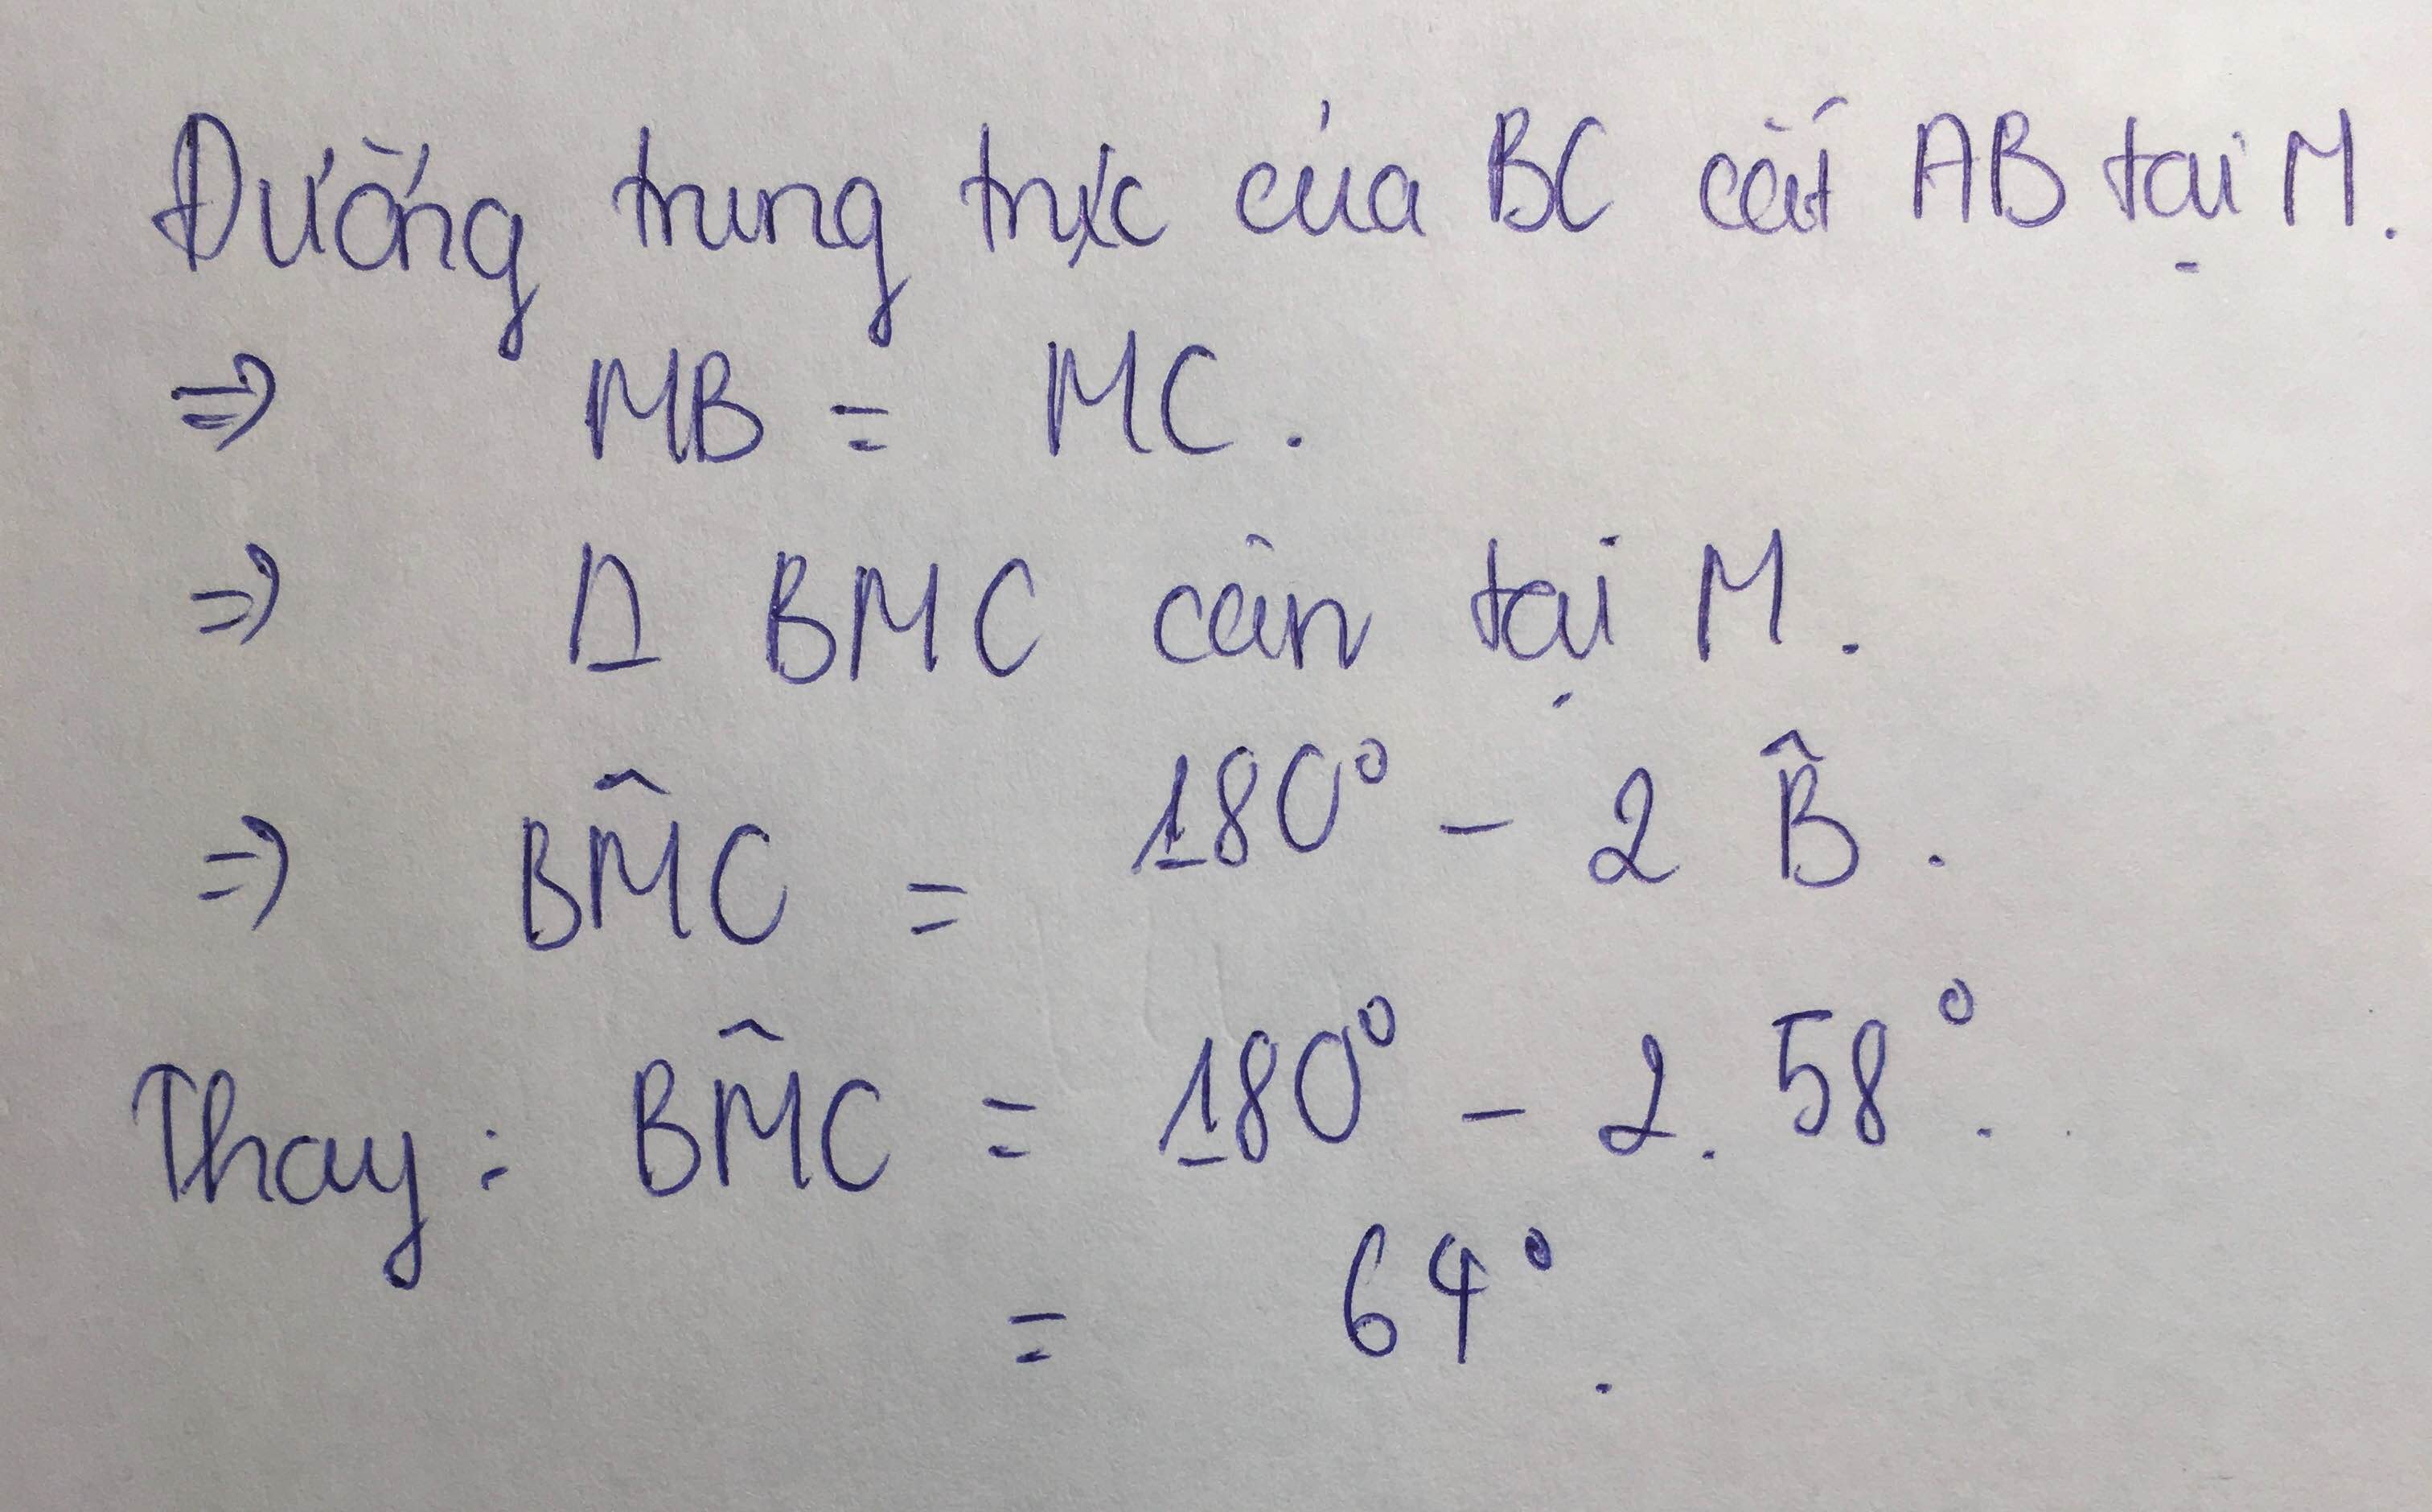 Đường trung trực của BC cắt AB tại M.
=> MB = MC.
=> Δ BMC cân tại M.
=> BM̂C = 180° - 2 B̂.
Thay: BM̂C = 180° - 2. 58°.
= 64°.